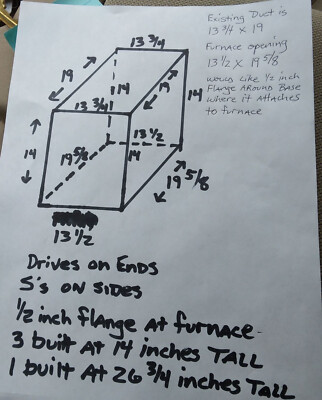 Existing Duct is
13 3/4 x 19
Furnace opening
13 1/2 x 19 5/8
would like 1/2 inch
Flange Around Base
where it Attaches
to furnace
13 3/4
19
14
19
13 3/4
14
14
13 1/2
14
19 5/8
19 5/8
13 1/2
Drives on Ends
S's on sides
1/2 inch flange at furnace.
3 built at 14 inches TALL
1 built At 26 3/4 inches TALL